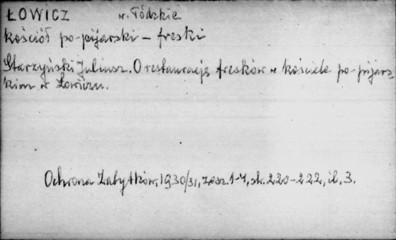 ŁOWICZ w. Łódzkie
Kościół po-pijarski – freski
Starzyński Juliusz. O restaurację fresków w kościele po-pijars-
kim w Łowiczu.
Ochrona Zabytków, 1930/31, zesz. 1-4, str. 220-222, il. 3.